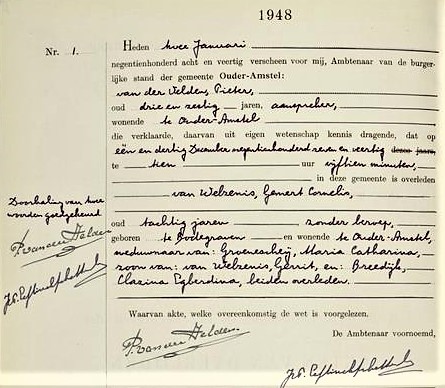 1948
Nr. 1.
Heden twee Januari
negentienhonderd acht en veertig verscheen voor mij, Ambtenaar van de burger-
lijke stand der gemeente Ouder-Amstel:
van der Velden, Pieter,
oud drie en zestig jaren, aanspreker,
wonende te Ouder-Amstel
die verklaarde, daarvan uit eigen wetenschap kennis dragende, dat op
eên en dertig December negentienhonderd zeven en veertig dezes jaars,
te tien uur vijftien minuten,
in deze gemeente is overleden
van Welzenis, Gemert Cornelis,
oud tachtig jaren zonder beroep,
geboren te Bodegraven en wonende te Ouder-Amstel,
weduwnaar van: Groenescheij, Maria Catharina,
zoon van: van Welzenis, Gerrit, en: Breedijk,
Clazina Egberdina, beiden overleden.
Doorhaling van twee
woorden goedgekeurd
P. van der Velden
Waarvan akte, welke overeenkomstig de wet is voorgelezen.
P. van der Velden
De Ambtenaar voornoemd,